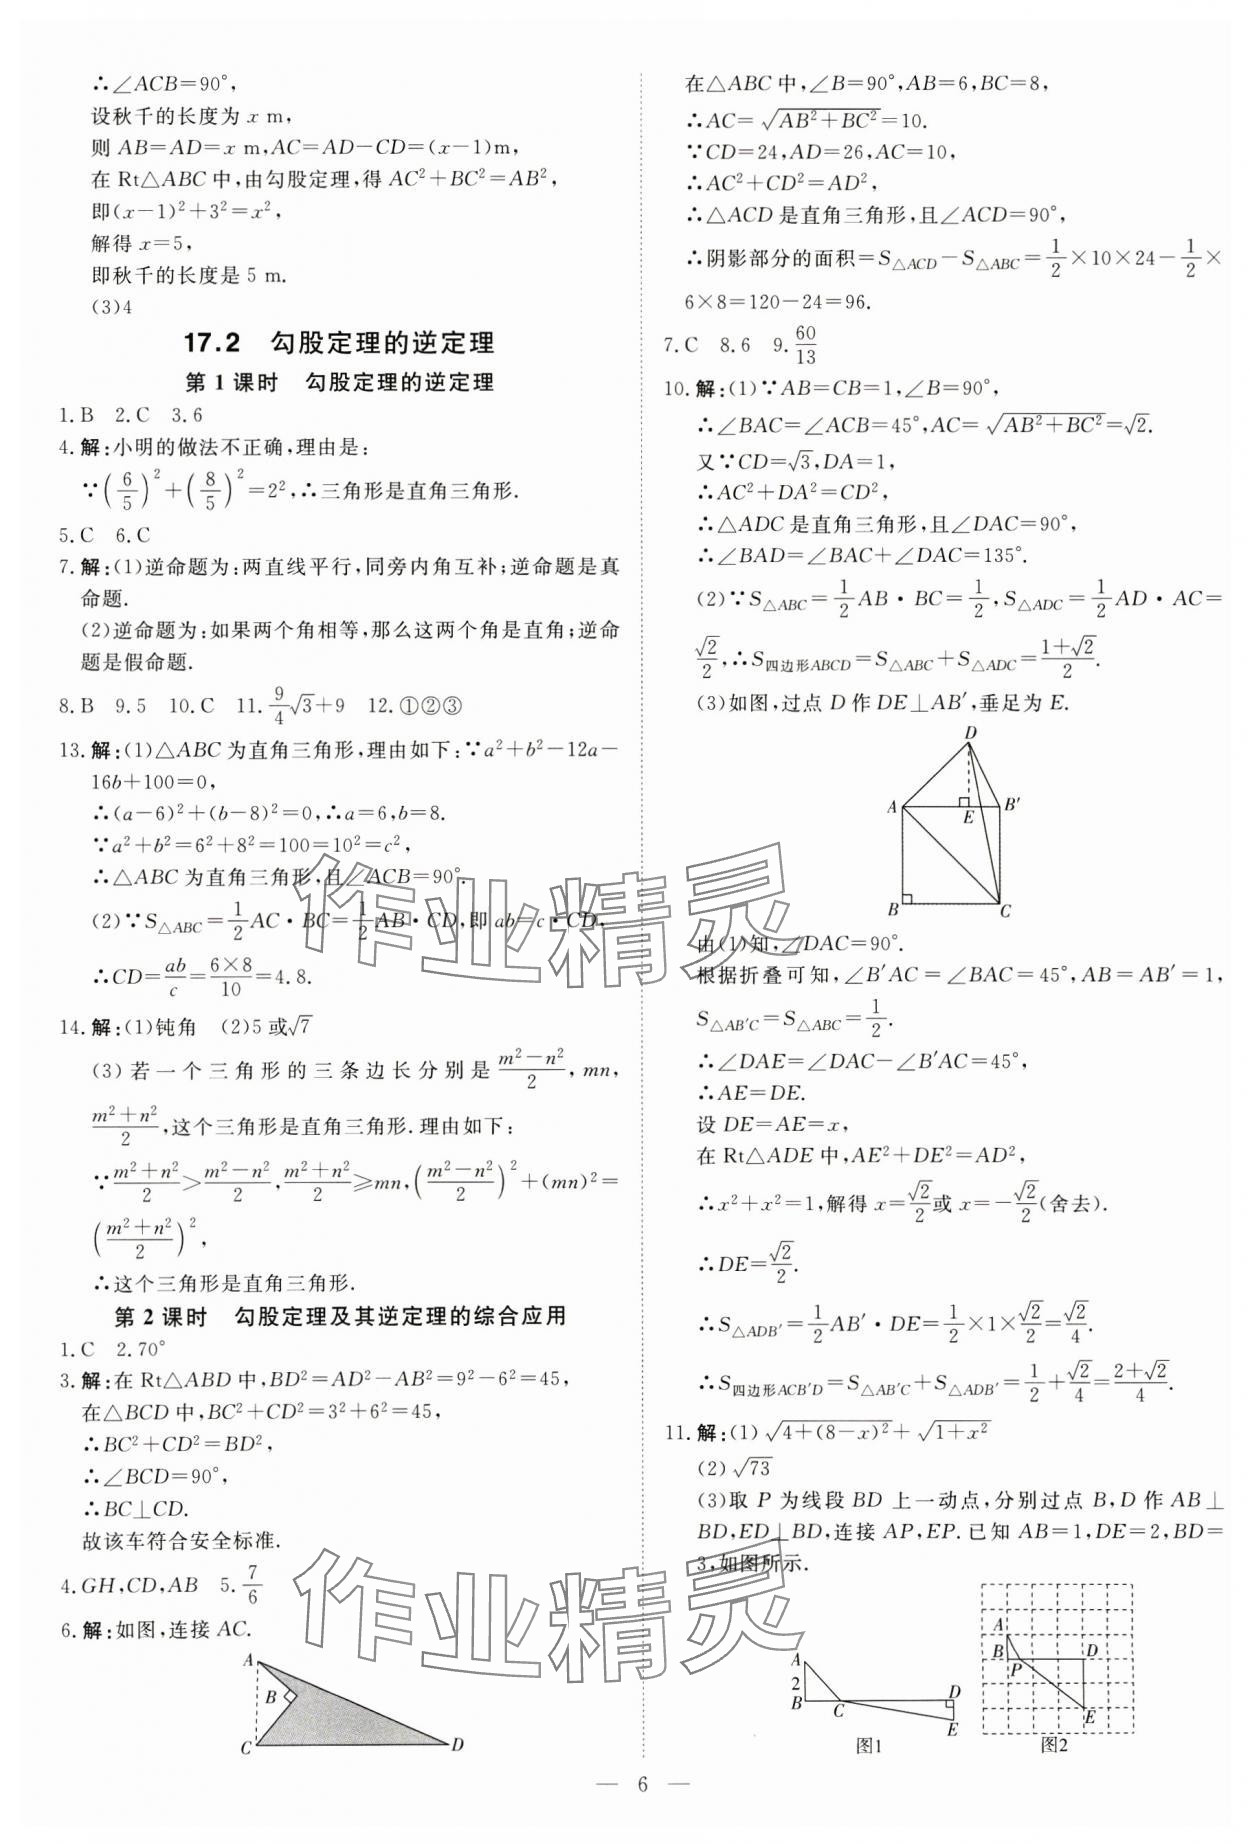 ∴∠ACB=90°,
设秋千的长度为 x m,
则 AB=AD=x m,AC=AD-CD=(x-1)m,
在 Rt△ABC 中,由勾股定理,得 AC²+BC²=AB²,
即(x-1)²+3²=x²,
解得 x=5,
即秋千的长度是 5 m.
(3)4
17.2 勾股定理的逆定理
第 1 课时 勾股定理的逆定理
1.B 2.C 3.6
4.解:小明的做法不正确,理由是:
∵(6/5)²+(8/5)²=2²,∴三角形是直角三角形.
5.C 6.C
7.解:(1)逆命题为:两直线平行,同旁内角互补;逆命题是真
命题.
(2)逆命题为:如果两个角相等,那么这两个角是直角;逆命
题是假命题.
8.B 9.5 10.C 11.9/4√3+9 12.①②③
13.解:(1)△ABC 为直角三角形,理由如下:∵a²+b²-12a-
16b+100=0,
∴(a-6)²+(b-8)²=0,∴a=6,b=8.
∵a²+b²=6²+8²=100=10²=c²,
∴△ABC 为直角三角形,且∠ACB=90°.
(2)∵S△ABC=1/2AC·BC=1/2AB·CD,即 ab=c·CD,
∴CD=ab/c=6×8/10=4.8.
14.解:(1)钝角 (2)5 或√7
(3)若一个三角形的三条边长分别是 (m²-n²)/2,mn,
(m²+n²)/2,这个三角形是直角三角形.理由如下:
∵(m²+n²)/2>(m²-n²)/2,(m²+n²)/2≥mn,((m²-n²)/2)²+(mn)²=
((m²+n²)/2)²,
∴这个三角形是直角三角形.
第 2 课时 勾股定理及其逆定理的综合应用
1.C 2.70°
3.解:在 Rt△ABD 中,BD²=AD²-AB²=9²-6²=45,
在△BCD 中,BC²+CD²=3²+6²=45,
∴BC²+CD²=BD²,
∴∠BCD=90°,
∴BC⊥CD.
故该车符合安全标准.
4.GH,CD,AB 5.7/6
6.解:如图,连接 AC.
A
B
C
D
在△ABC 中,∠B=90°,AB=6,BC=8,
∴AC=√(AB²+BC²)=10.
∵CD=24,AD=26,AC=10,
∴AC²+CD²=AD²,
∴△ACD 是直角三角形,且∠ACD=90°,
∴阴影部分的面积=S△ACD-S△ABC=1/2×10×24-1/2×
6×8=120-24=96.
7.C 8.6 9.60/13
10.解:(1)∵AB=CB=1,∠B=90°,
∴∠BAC=∠ACB=45°,AC=√(AB²+BC²)=√2.
又∵CD=√3,DA=1,
∴AC²+DA²=CD²,
∴△ADC 是直角三角形,且∠DAC=90°,
∴∠BAD=∠BAC+∠DAC=135°.
(2)∵S△ABC=1/2AB·BC=1/2,S△ADC=1/2AD·AC=
√2/2,∴S四边形ABCD=S△ABC+S△ADC=(1+√2)/2.
(3)如图,过点 D 作 DE⊥AB′,垂足为 E.
D
A
E
B′
B
C
由(1)知,∠DAC=90°.
根据折叠可知,∠B′AC=∠BAC=45°,AB=AB′=1,
S△AB′C=S△ABC=1/2.
∴∠DAE=∠DAC-∠B′AC=45°,
∴AE=DE.
设 DE=AE=x,
在 Rt△ADE 中,AE²+DE²=AD²,
∴x²+x²=1,解得 x=√2/2或 x=-√2/2(舍去).
∴DE=√2/2.
∴S△ADB′=1/2AB′·DE=1/2×1×√2/2=√2/4.
∴S四边形ACB′D=S△AB′C+S△ADB′=1/2+√2/4=(2+√2)/4.
11.解:(1)√(4+(8-x)²)+√(1+x²)
(2)√73
(3)取 P 为线段 BD 上一动点,分别过点 B,D 作 AB⊥
BD,ED⊥BD,连接 AP,EP.已知 AB=1,DE=2,BD=
3,如图所示.
A
2
B
C
D
E
图1
A
B
P
D
E
图2
作业精灵
作业精灵
— 6 —